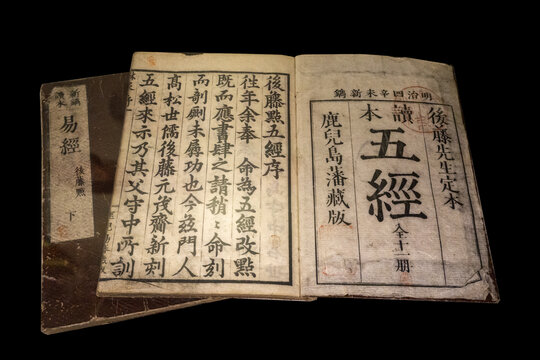 明治四辛未新鐫
後藤先生定本
讀本
五經
全十一册
鹿兒島藩藏版
後藤點五經序
徃年余奉 命為五經改點
既而應書肆之請稍〻命刻
而剞劂未功也今茲門人
高松世儒後藤元茂齋新刻
五經來示乃其父守中所訓
新鐫
讀本
易經
後藤點
下